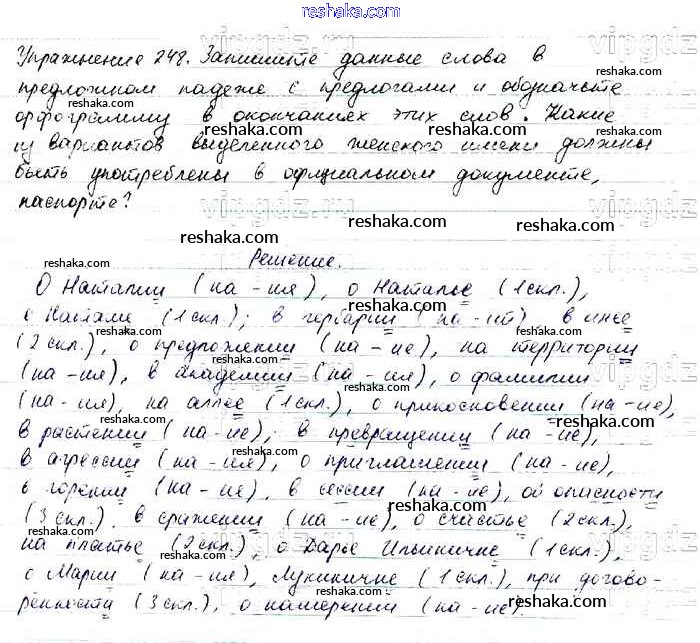 reshaka.com
Упражнение 248. Запишите данные слова в
предложном падеже с предлогами и обозначьте
орфограмму в окончаниях этих слов. Какие
из вариантов выделенного женского имени должны
быть употреблены в официальном документе,
паспорте?
Решение.
О Наталии (на - ия), о Наталье (1 скл.),
о Натале (1 скл.); в гербарии (на - ий) в инее
(2 скл.), о предложении (на - ие), на территории
(на - ия), в Академии (на - ия), о фамилии
(на - ия), на аллее (1 скл.), о прикосновении (на - ие),
в растении (на - ие), в превращении (на - ие),
в агрессии (на - ия), о приглашении (на - ие),
о горении (на - ие), в сессии (на - ие), об опасности
(3 скл.). в сражении (на - ие), о счастье (2 скл.),
на платье (2 скл.), о Дарье Ильиничне (1 скл.),
о Марии (на - ия), Лукиничне (1 скл.), при догово-
ренности (3 скл.), о намерении (на - ие).